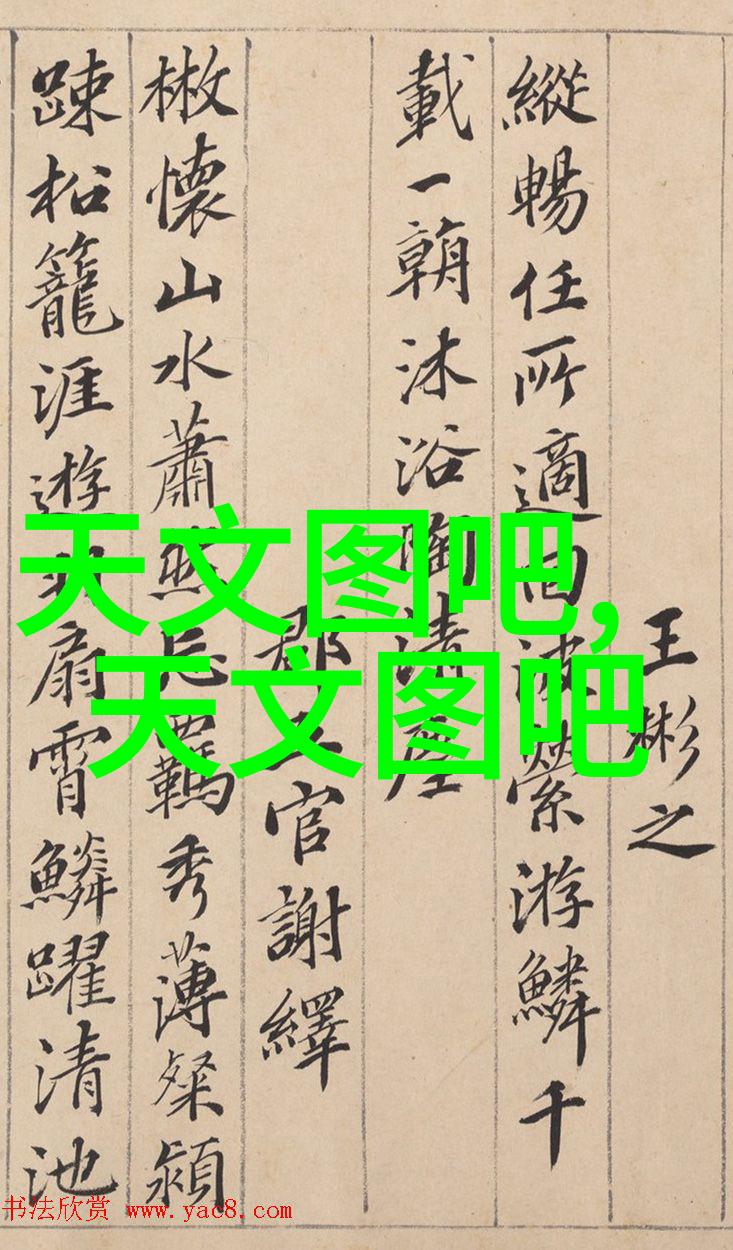 王彬之
縱暢任所適回波縈游鱗千
載一朝沐浴陶清塵
郡五官謝繹
散懷山水蕭然忘羈秀薄粲穎
踈松籠涯遊羽扇霄鱗躍清池
天文图吧,
天文图吧
书法欣赏 www.yac8.com